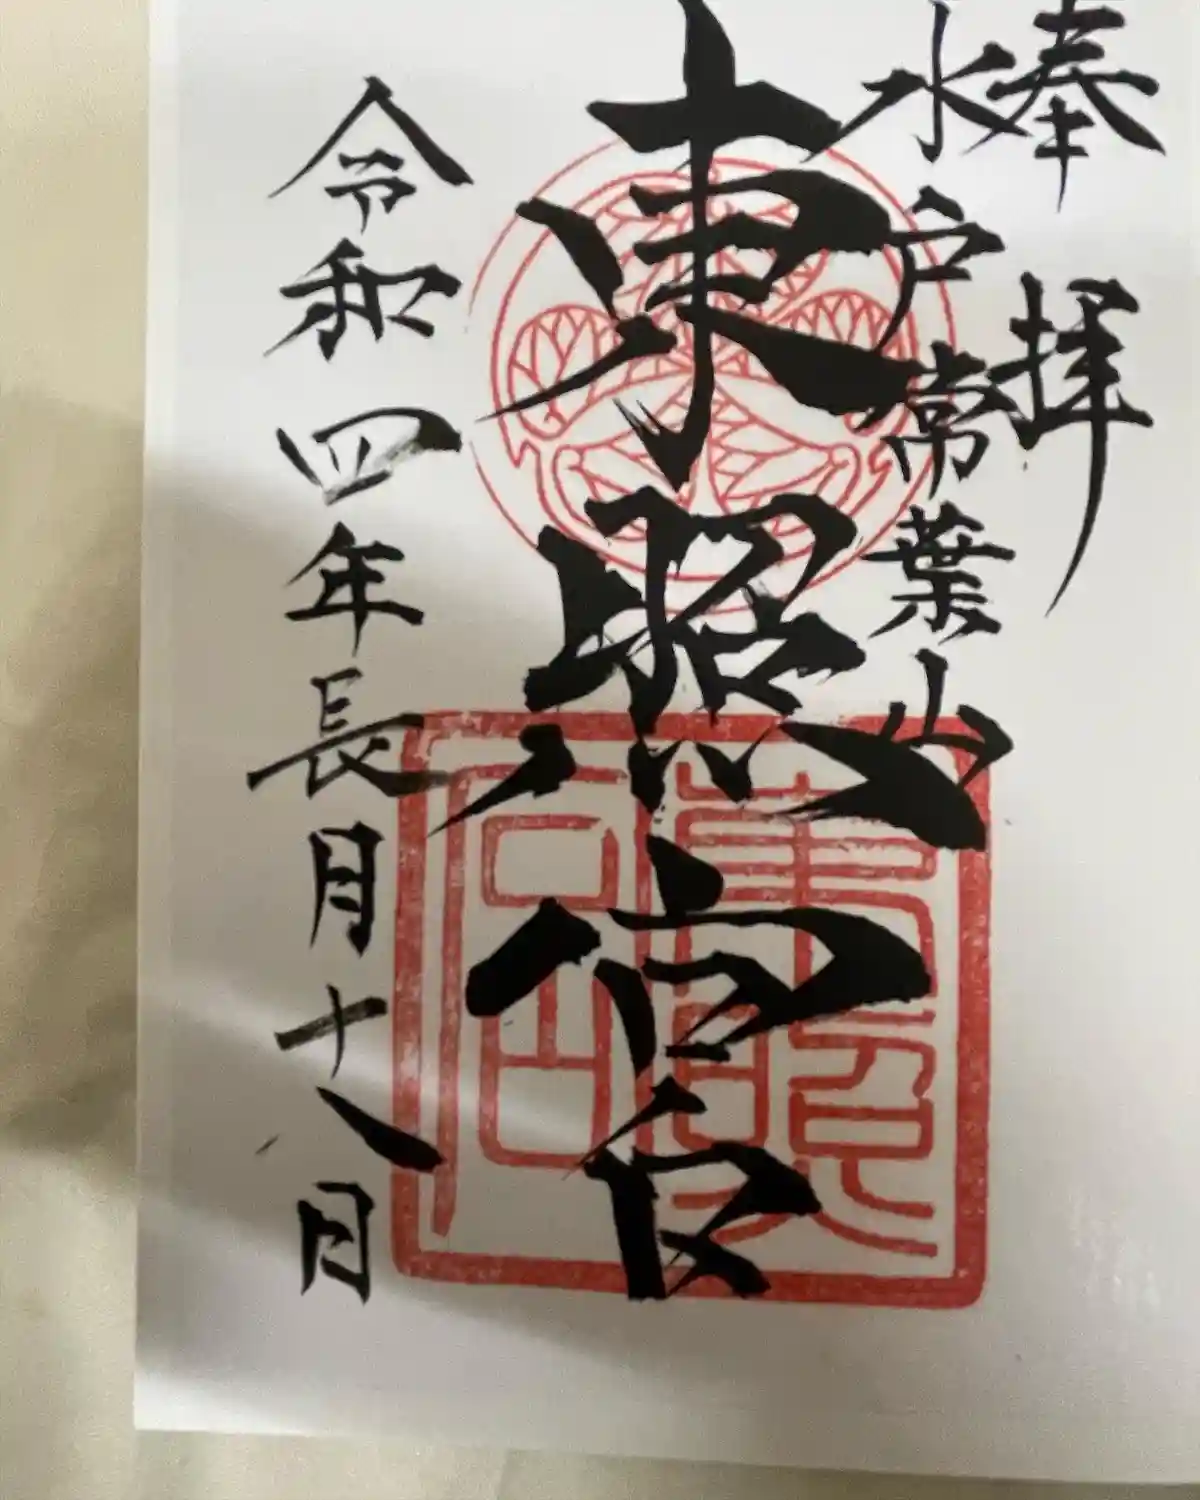 奉拝
水戸常葉山
東照宮
東照宮
令和四年長月十八日